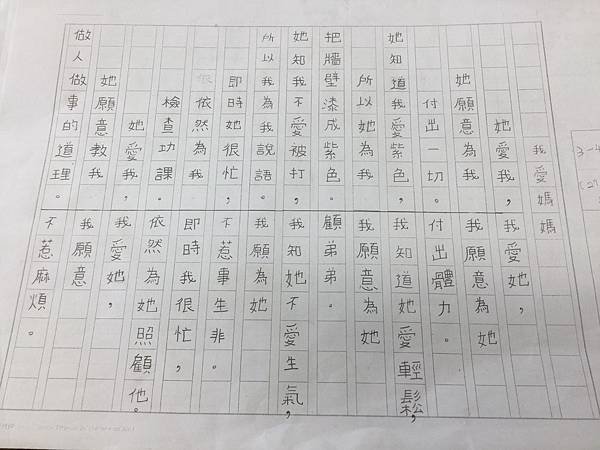 我愛媽媽
她愛我，
她願意為我
付出一切。
她知道我愛紫色，
所以她為我
把牆壁漆成紫色。
她知我不愛被打，
所以我為我說語。
即時她很忙，
依然為我
檢查功課。
她愛我，
她願意教我
做人做事的道理。
我愛她，
我願意為她
付出體力。
我知道她愛輕鬆，
我願意為她
顧弟弟。
我知她不愛生氣，
我願為她
不惹事生非。
即時我很忙，
依然為她照顧他。
我愛她，
我願意
不惹麻煩。